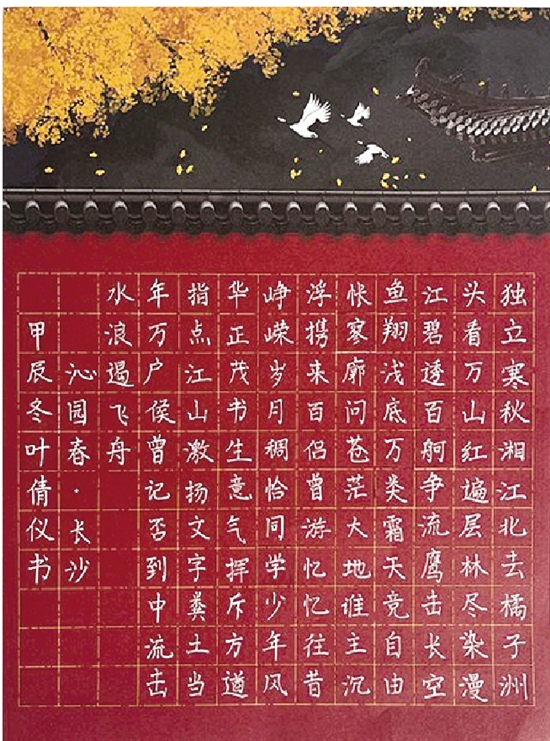 独立寒秋湘江北去橘子洲
头看万山红遍层林尽染漫
江碧透百舸争流鹰击长空
鱼翔浅底万类霜天竞自由
怅寥廓问苍茫大地谁主沉
浮携来百侣曾游忆忆往昔
峥嵘岁月稠恰同学少年风
华正茂书生意气挥斥方遒
指点江山激扬文字粪土当
年万户侯曾记否到中流击
水浪遏飞舟
沁园春·长沙
甲辰冬叶倩仪书